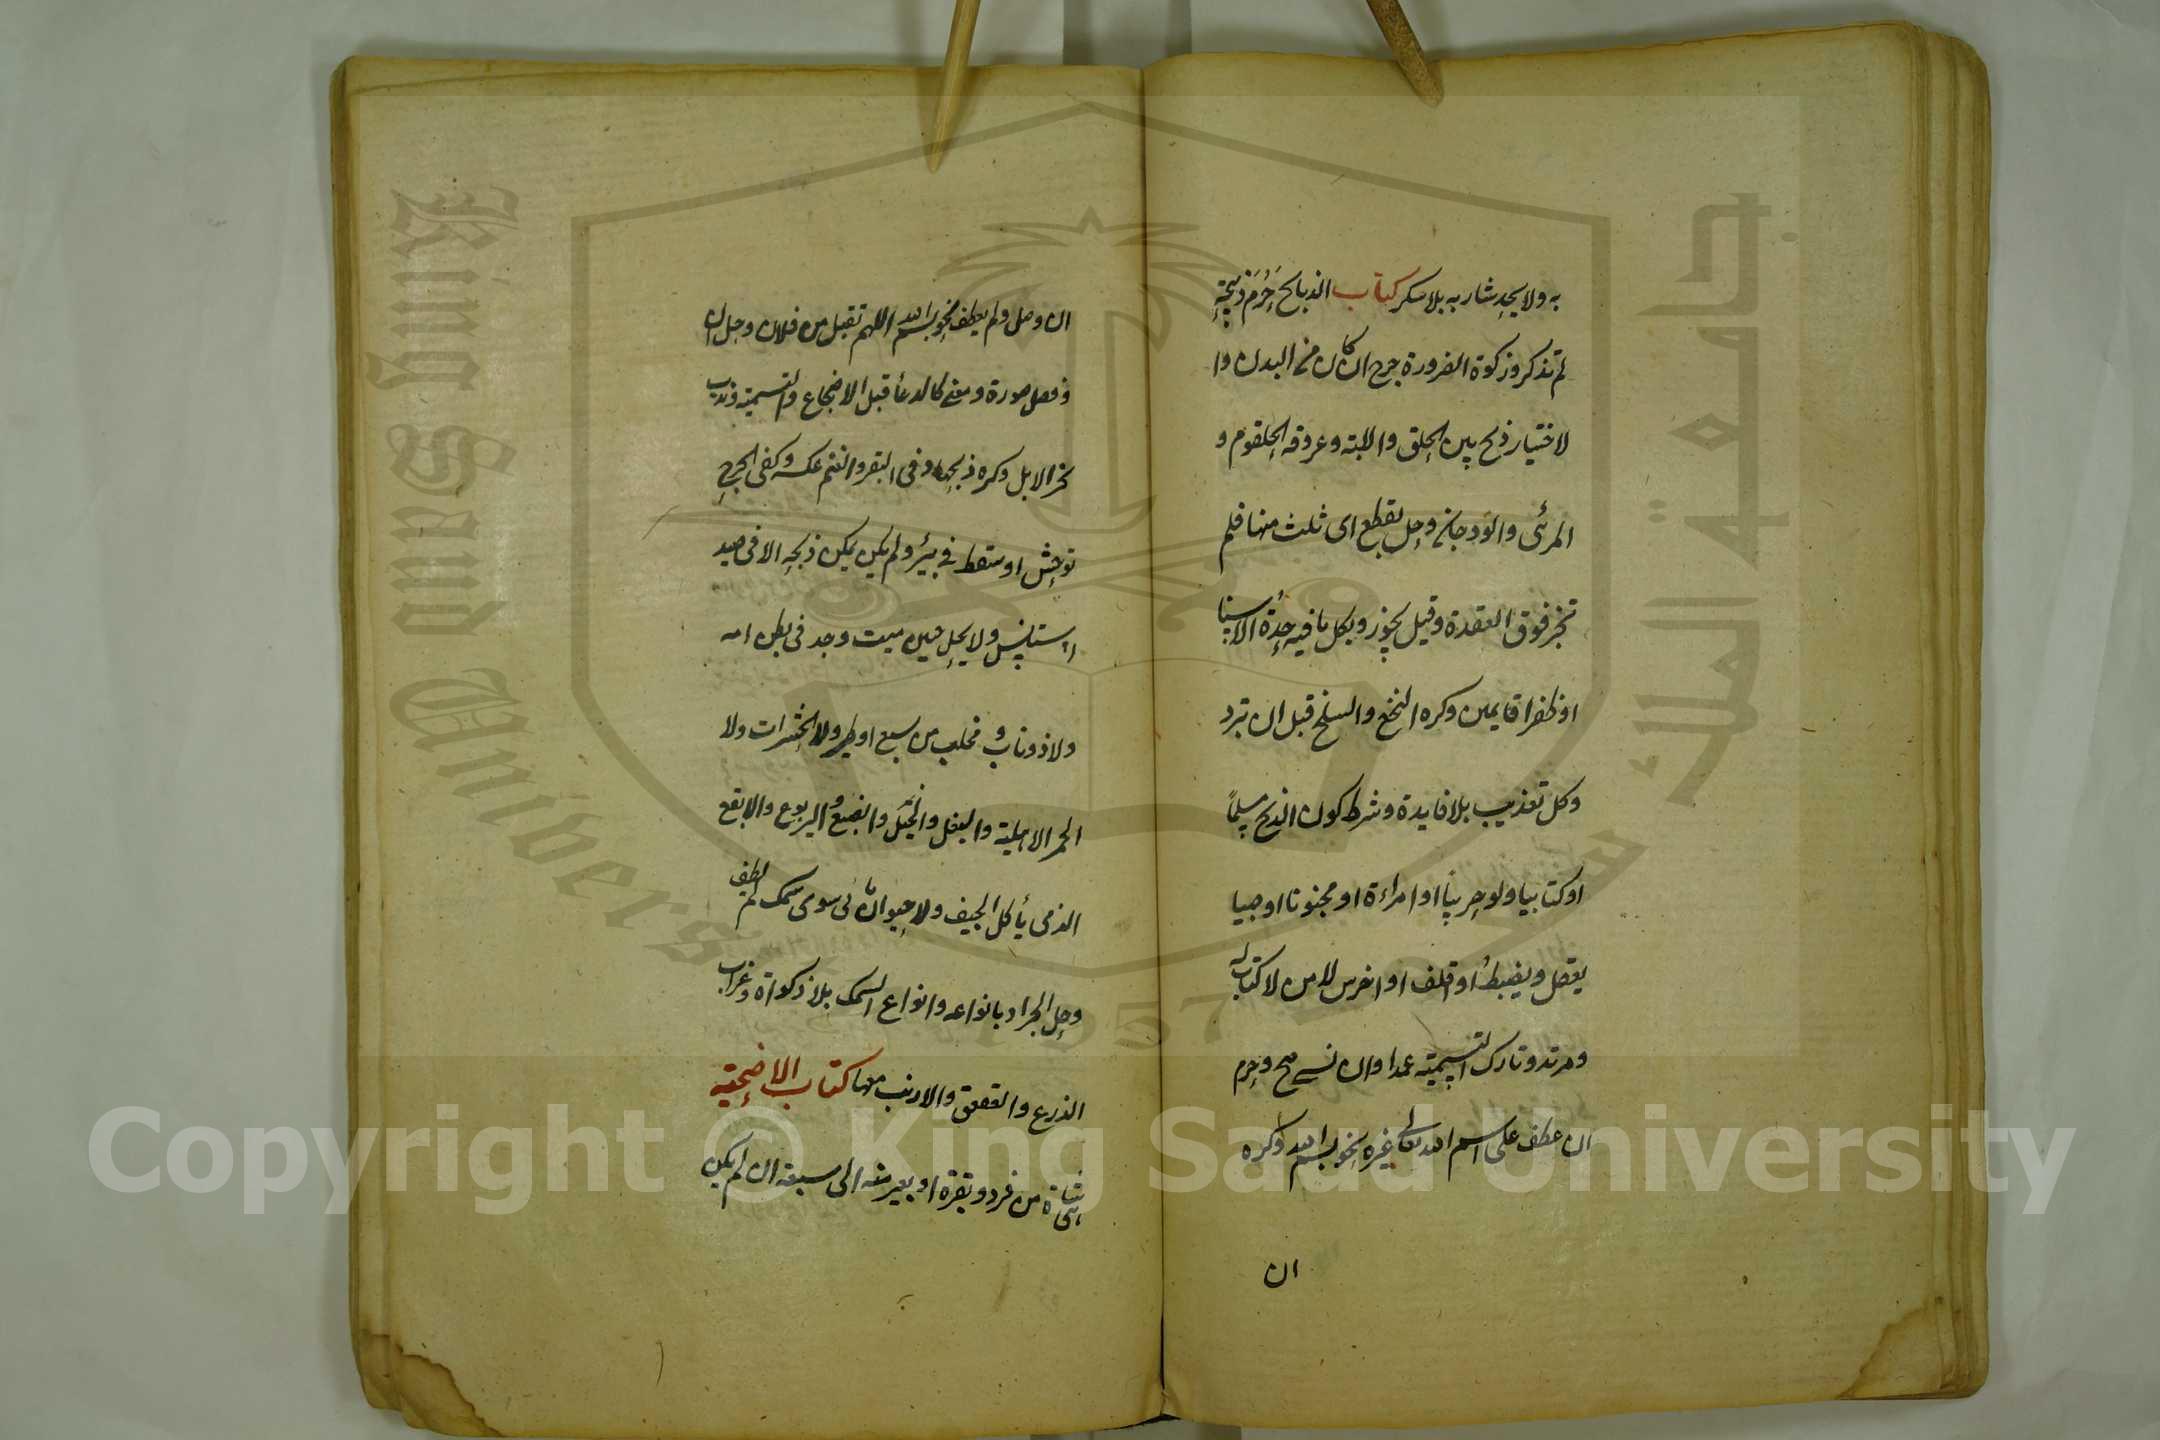 به ولا يحد شاربه بلا سكر كتاب الذبائح حرم ذبيحة
لم تذكر وزكوة الضرورة جرح ان كان من البدن وا
لاختيار ذبح بين الحلق والابته وعروقه الحلقوم و
المرئى والودجان وحل بقطع اى ثلث منها فلم
تجز فوق العقدة وقيل يجوز وبكل ما فيه حدة الا سنا
او ظفرا قايمين وكره النخع والسلخ قبل ان تبرد
وكل تعذيب بلا فايدة وشرط كون الذبح مسلماً
او كتابيا ولو حربياً او امراءة او مجنونا او صبيا
يعقل ويضبط او اقلف او اخرس لا من لا كتاب له
ومرتد وتارك التسمية عمدا وان نسي صح وحرم
ان عطف على اسم الله تعالى غيره نحو بسم الله وكره
ان
ان وصل ولم يعطف نحو بسم الله اللهم تقبل من فلان وحل ان
فصل صورة ومعنى كالدعأ قبل الاضجاع والتسمية وندب
نحر الابل وكره ذبحها وفى البقر والغنم عكسه وكفى الجرح
توحش او سقط في بئر ولم يكن يمكن ذبحه الا فى صيد
استانس ولا يحل جنين ميت وجد فى بطن امه
ولا ذو ناب و مخلب من سبع او طير ولا الحشرات ولا
الحمر الاهلية والبغل والخيل والضبع واليربوع والابقع
الذى يأكل الجيف ولا حيوان مائى سوى سمك لم يطف
وحل الجراد بانواعه وانواع السمك بلا ذكواة وغراب
الذرع والعقعق والارنب معها كتاب الاضحية
شاة من فرد وبقرة او بعير منه الى سبعة ان لم يكن
King Saud University
جامعة الملك سعود
1957
Copyright © King Saud University